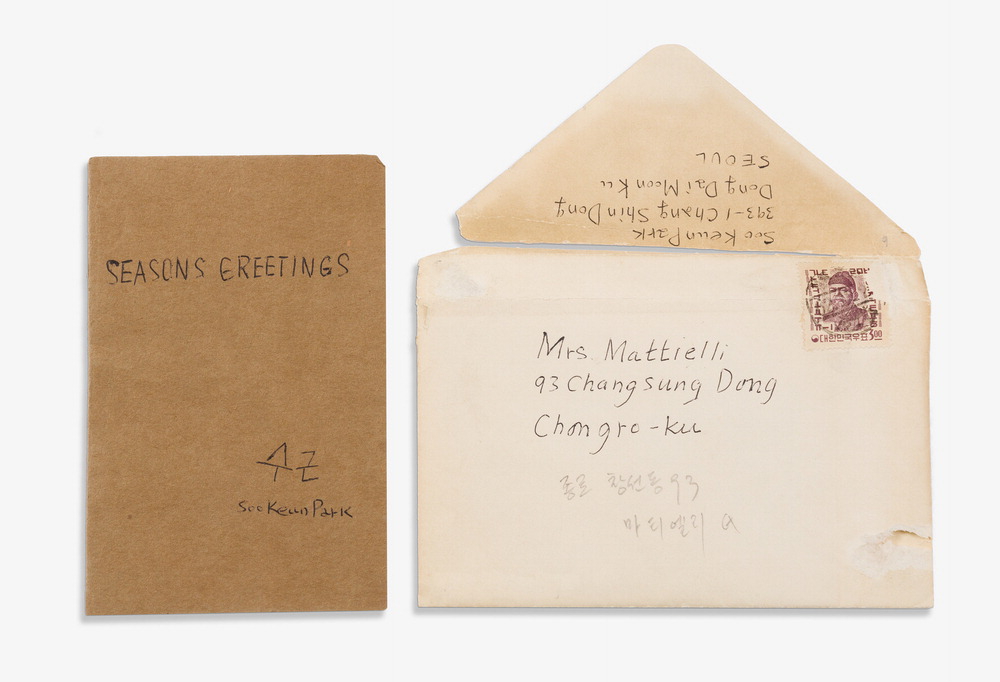 SEASONS GREETINGS
수근
Soo Keun Park
Soo Keun Park
393-1 Chang Shin Dong
Dong Dai Moon Ku
SEOUL
대한민국우표 3.00
Mrs. Mattielli
93 Changsung Dong
Chongro-ku
종로 창선동 93
마티엘리